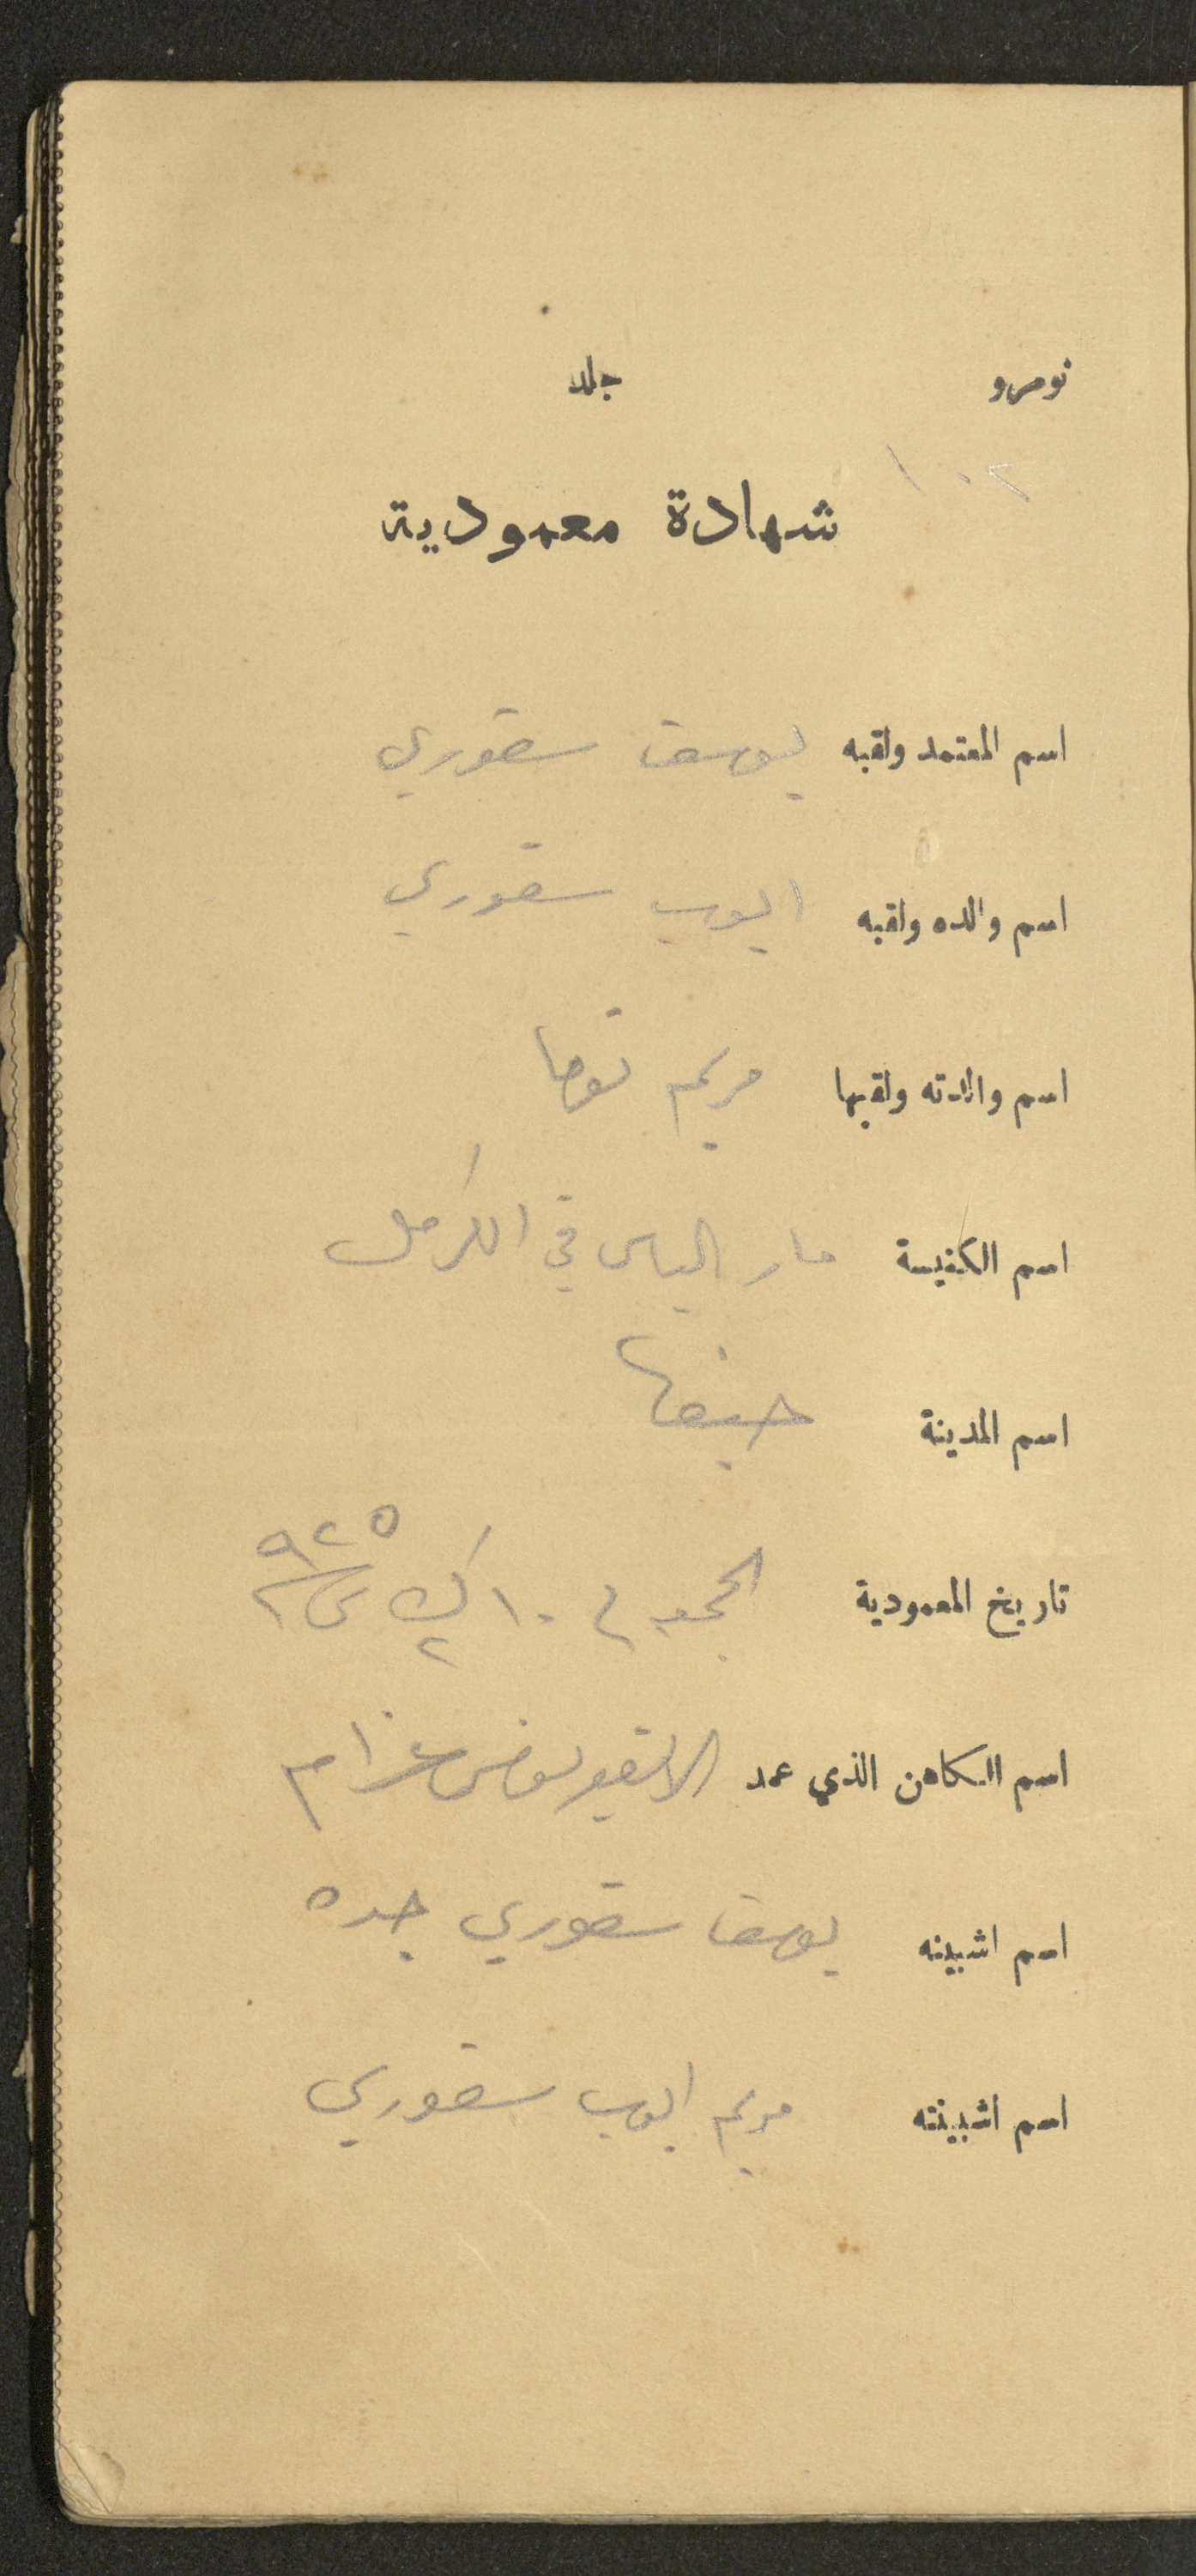 نومرو جلد
١٠٢
شهادة معمودية
اسم المعتمد ولقبه يوسف سقوري
اسم والده ولقبه ايوب سقوري
اسم والدته ولقبها مريم توما
اسم الكنيسة مار الياس في الكرمل
اسم المدينة حيفا
تاريخ المعمودية الجمعة في ١٠ ك٢ سنة ٩٢٥
اسم الكاهن الذي عمد عزام
اسم اشبينه يوسف سقوري جده
اسم اشبينته مريم ايوب سقوري